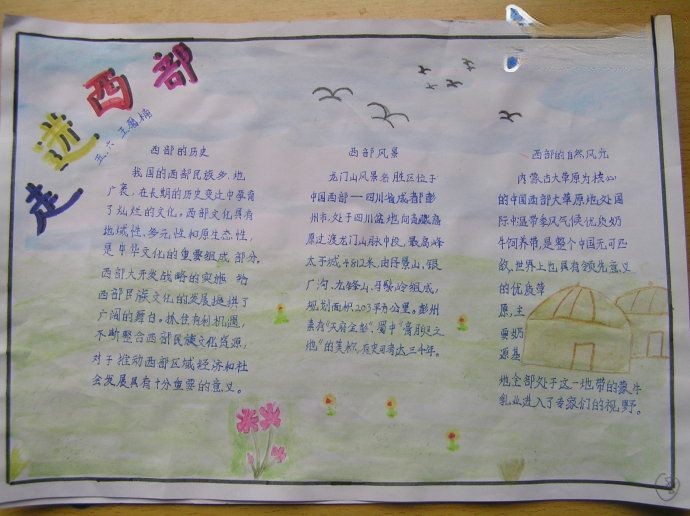 走进西部
五.六 王
西部的历史
我国的西部民族多，地
广袤，在长期的历史变迁中孕育
了灿烂的文化。西部文化具有
地域性、多元性和原生态性，
是中华文化的重要组成部分。
西部大开发战略的实施给
西部民族文化的发展提供了
广阔的舞台。抓住有利机遇，
不断整合西部民族文化资源，
对于推动西部区域经济和社
会发展具有十分重要的意义。
西部风景
龙门山风景名胜区位于
中国西部一四川省成都彭
州市，处于四川盆地向青藏高
原过渡龙门山脉中段，最高峰
太子城4812米，由丹景山、银
厂沟、九峰山、
规划面积203平方公里。彭州
素有"天府金彭"、蜀中"膏腴之
地"的美称，历史可考达三千年。
西部的自然风光
内蒙古大草原为核心
的中国西部大草原地处国
际中温带季风气候优良奶
牛饲养带，是整个中国无可匹
敌，世界上也具有领先意义
的优良草
原，主
要奶
源基
地全部处于这一地带的蒙牛
乳业进入了专家们的视野。